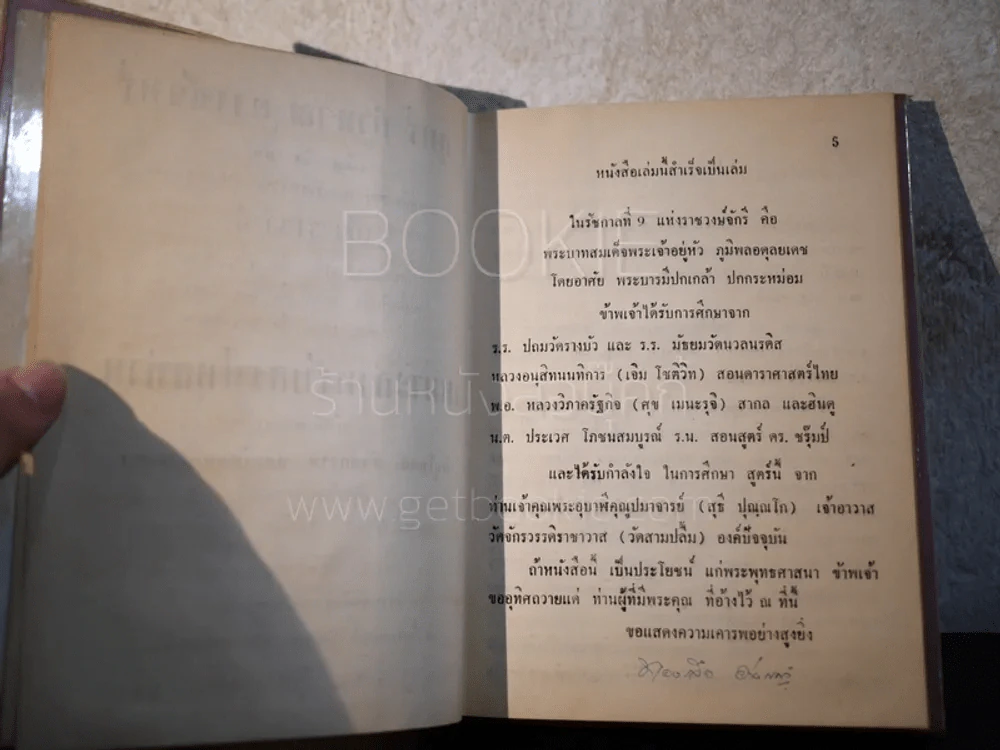 5
หนังสือเล่มนี้สำเร็จเป็นเล่ม
ในรัชกาลที่ 9 แห่งราชวงษ์จักรี คือ
พระบาทสมเด็จพระเจ้าอยู่หัว ภูมิพลอดุลยเดช
โดยอาศัย พระบารมีปกเกล้า ปกกระหม่อม
ข้าพเจ้าได้รับการศึกษาจาก
ร.ร. ปถมวัดรางบัว และ ร.ร. มัธยมวัดนวลนรดิส
หลวงอนุสิทนนทิการ (เจิม โชติวิท) สอนดาราศาสตร์ไทย
พ.อ. หลวงวิภาครัฐกิจ (ศุข เมนะรุจิ) สากล และฮินดู
น.ต. ประเวศ โภชนสมบูรณ์ ร.น. สอนสูตร์ ดร. ชรุ๊มป์
และได้รับกำลังใจ ในการศึกษา สูตร์นี้ จาก
ท่านเจ้าคุณพระอุบาฬีคุณูปมาจารย์ (สุธี ปุณฺณโก) เจ้าอาวาส
วัดจักรวรรดิราชาวาส (วัดสามปลื้ม) องค์ปัจจุบัน
ถ้าหนังสือนี้ เป็นประโยชน์ แก่พระพุทธศาสนา ข้าพเจ้า
ขออุทิศถวายแด่ ท่านผู้ที่มีพระคุณ ที่อ้างไว้ ณ ที่นี้
ขอแสดงความเคารพอย่างสูงยิ่ง
BOOKIE
ร้านหนังสือบุ๊คกี้
www.getbookie.com